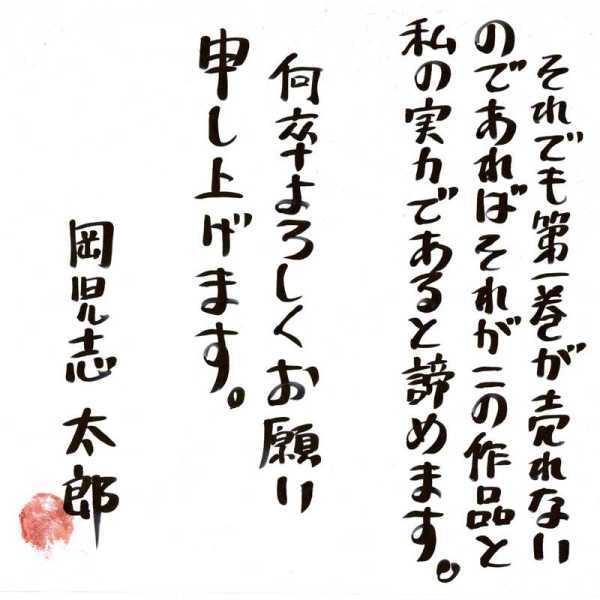 それでも第一巻が売れない
のであればそれがこの作品と
私の実力であると諦めます。
何卒よろしくお願い
申し上げます。
岡児志 太郎